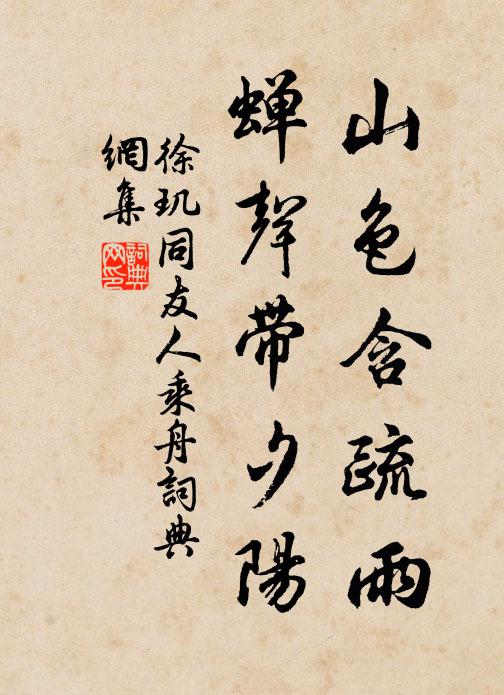 山色含疏雨
蝉聲带夕陽
徐玑同友人乘舟詞典
網集
詞典
网印